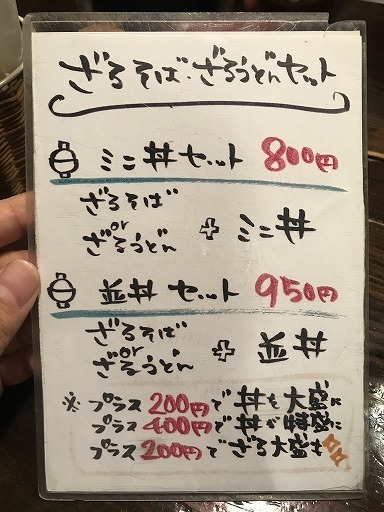 ざるそば・ざるうどんセット
ミニ丼セット 800円
ざるそば
or
ざるうどん
+ ミニ丼
並丼 セット 950円
ざるそば
or
ざるうどん
+ 並丼
※ プラス200円で 丼も大盛に
プラス400円で 丼が特盛に
プラス200円で ざる大盛も